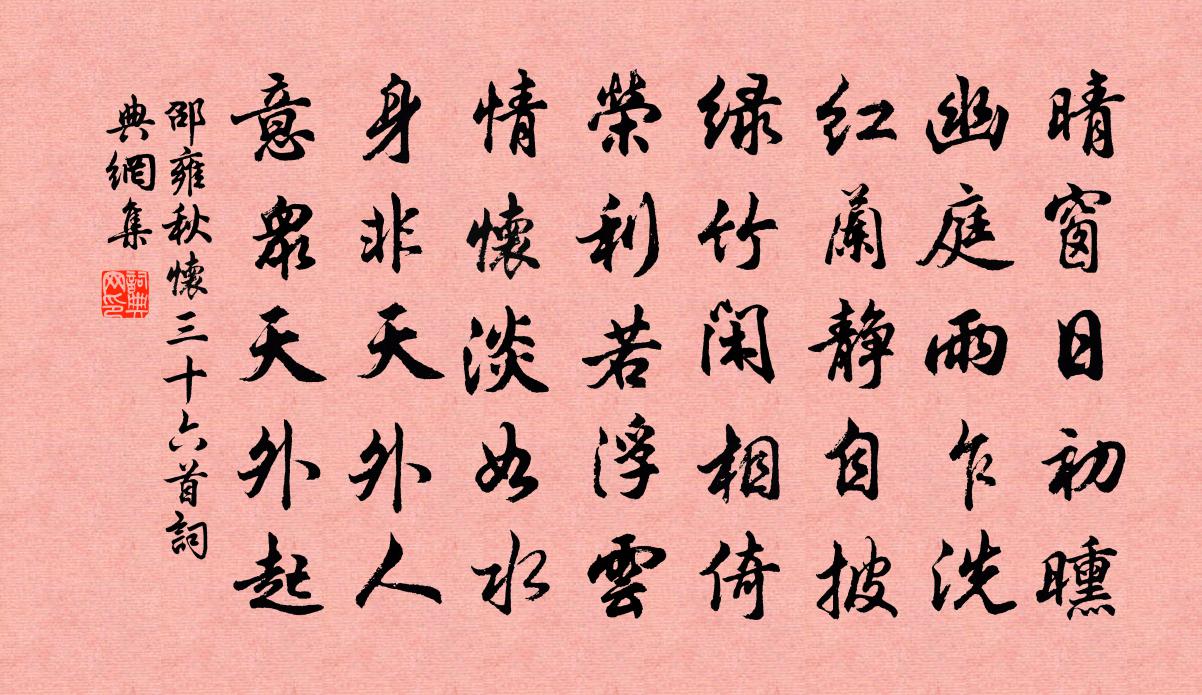 晴窗日初曛
幽庭雨乍洗
紅蘭静自披
綠竹閑相倚
榮利若浮雲
情懷淡如水
身非天外人
意衆天外起
邵雍秋懷三十六首詞
典網集
詞典网印